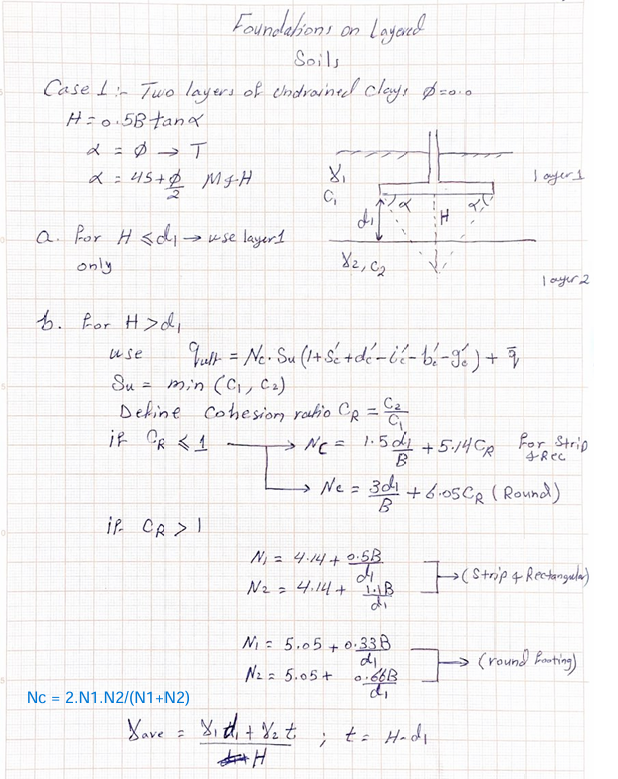 Foundations on Layered
Soils
Case 1:- Two layers of Undrained Clays φ=0.0
H = 0.5B tanα
α = φ → T
α = 45+φ/2 Mf.H
γ1
C1
α
α
H
d1
layer 1
a. for H ≤ d1 → use layer 1
only
γ2, C2
layer 2
b. for H > d1
use qult = Nc. Su (1+s'c+d'c-i'c-b'c-g'c) + q̄
Su = min (C1, C2)
Define Cohesion ratio CR = C2/C1
if CR ≤ 1 → Nc = 1.5d1/B + 5.14CR for Strip
& Rec
→ Nc = 3d1/B + 6.05CR (Round)
if CR > 1
N1 = 4.14 + 0.5B/d1
N2 = 4.14 + 1.1B/d1
→ (Strip & Rectangular)
N1 = 5.05 + 0.33B/d1
N2 = 5.05 + 0.66B/d1
→ (round footing)
Nc = 2.N1.N2/(N1+N2)
γave = γ1d1 + γ2t/H ; t = H-d1